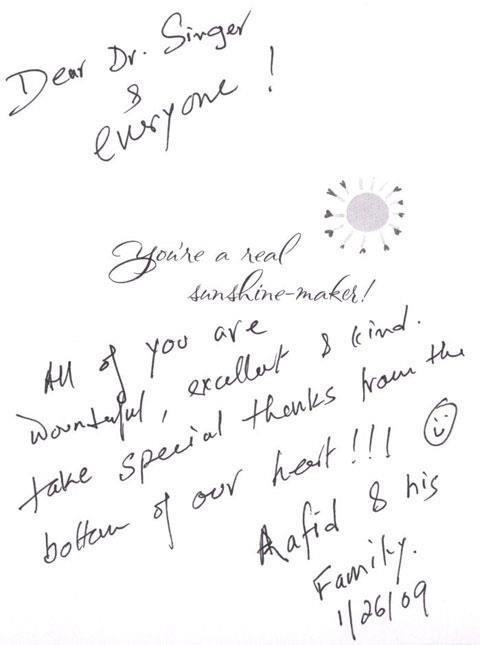 Dear Dr. Singer
&
everyone!
You're a real
sunshine-maker!
All of you are
wounterful, excellent & kind.
take special thanks from the
bottom of our heart!!!
Aafid & his
Family.
1/26/09